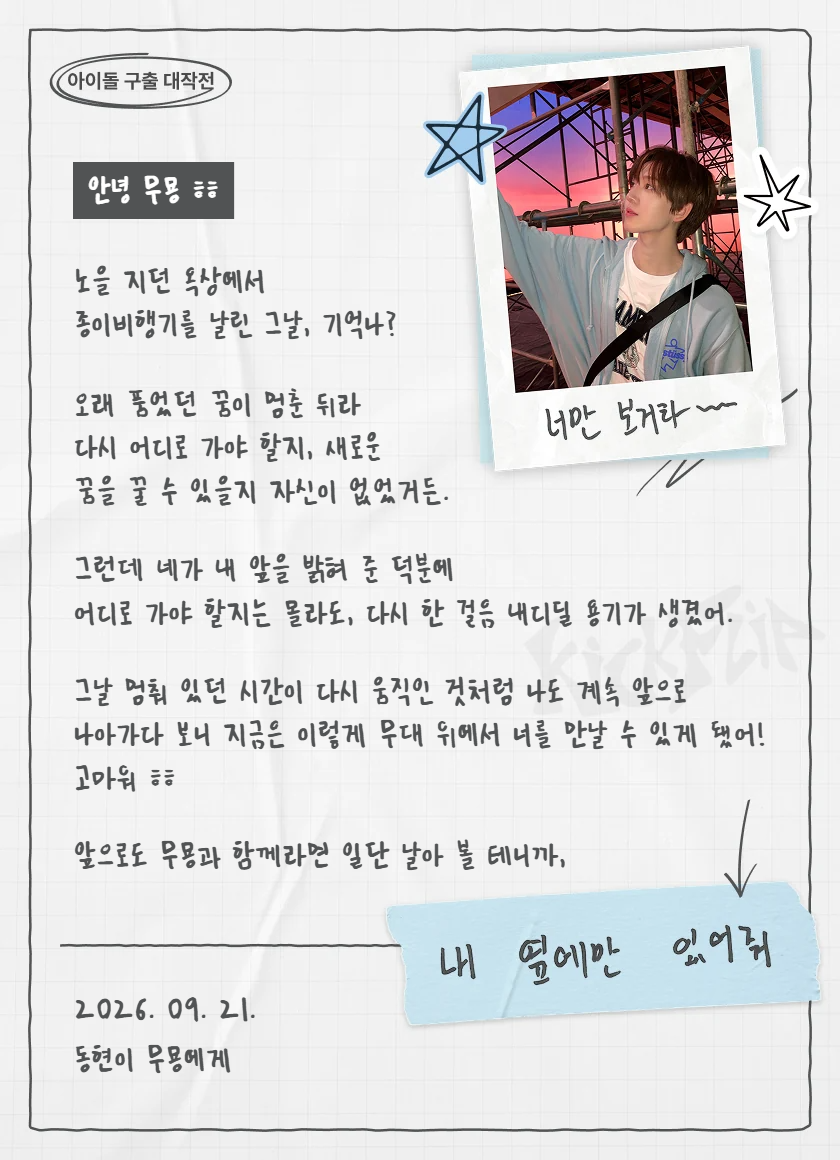 아이돌 구출 대작전
안녕 무묭 ㅎㅎ
너만 보거라~~
노을 지던 옥상에서
종이비행기를 날린 그날, 기억나?
오래 품었던 꿈이 멈춘 뒤라
다시 어디로 가야 할지, 새로운
꿈을 꿀 수 있을지 자신이 없었거든.
그런데 네가 내 앞을 밝혀 준 덕분에
어디로 가야 할지는 몰라도, 다시 한 걸음 내디딜 용기가 생겼어.
KickFlip
그날 멈춰 있던 시간이 다시 움직인 것처럼 나도 계속 앞으로
나아가다 보니 지금은 이렇게 무대 위에서 너를 만날 수 있게 됐어!
고마워 ㅎㅎ
앞으로도 무묭과 함께라면 일단 날아 볼 테니까,
내 옆에만 있어줘
2026. 09. 21.
동현이 무묭에게